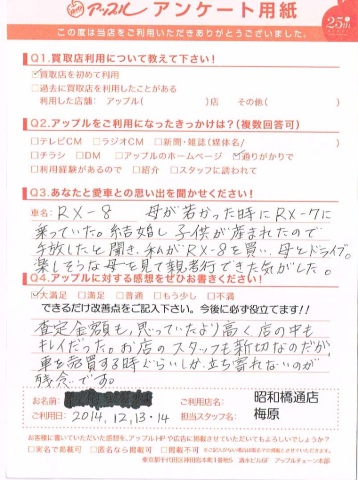 アップル アンケート用紙
25th
この度は当店をご利用いただきありがとうございました。
Q1.買取店利用について教えて下さい!
☑買取店を初めて利用
□過去に買取店を利用したことがある
利用した店舗: アップル( )店 その他( )
Q2.アップルをご利用になったきっかけは?(複数回答可)
□テレビCM □ラジオCM □新聞・雑誌(媒体名/ )
□チラシ □DM □アップルのホームページ ☑通りがかりで
□利用経験があるので □紹介 □スタッフに誘われて
Q3.あなたと愛車との思い出を聞かせください!
車名: RX-8 母が若かった時にRX-7に
乗っていた。結婚し子供が産まれたので
手放したと聞き、私がRX-8を買い、母とドライブ。
楽しそうな母を見て親孝行できた気がした。
Q4.アップルに対する感想をぜひお書きください!
☑大満足 □満足 □普通 □もう少し □不満
できるだけ改善点をご記入下さい。今後に必ず役立てます!!
査定金額も、思っていたより高く店の中も
キレイだった。お店のスタッフも親切なのだが、
車を売買する時ぐらいしか立ち寄れないのが
残念です。
お名前:
ご利用店名: 昭和橋通店
ご利用日: 2014,12,13・14
担当スタッフ名: 梅原
お客様に書いていただいた感想を、アップルHPや広告に掲載させていただいてもよろしいでしょうか?
□実名で掲載可 □匿名なら掲載可 □不可
東京都千代田区神田松永町1番地5 清水ビル6F アップルチェーン本部